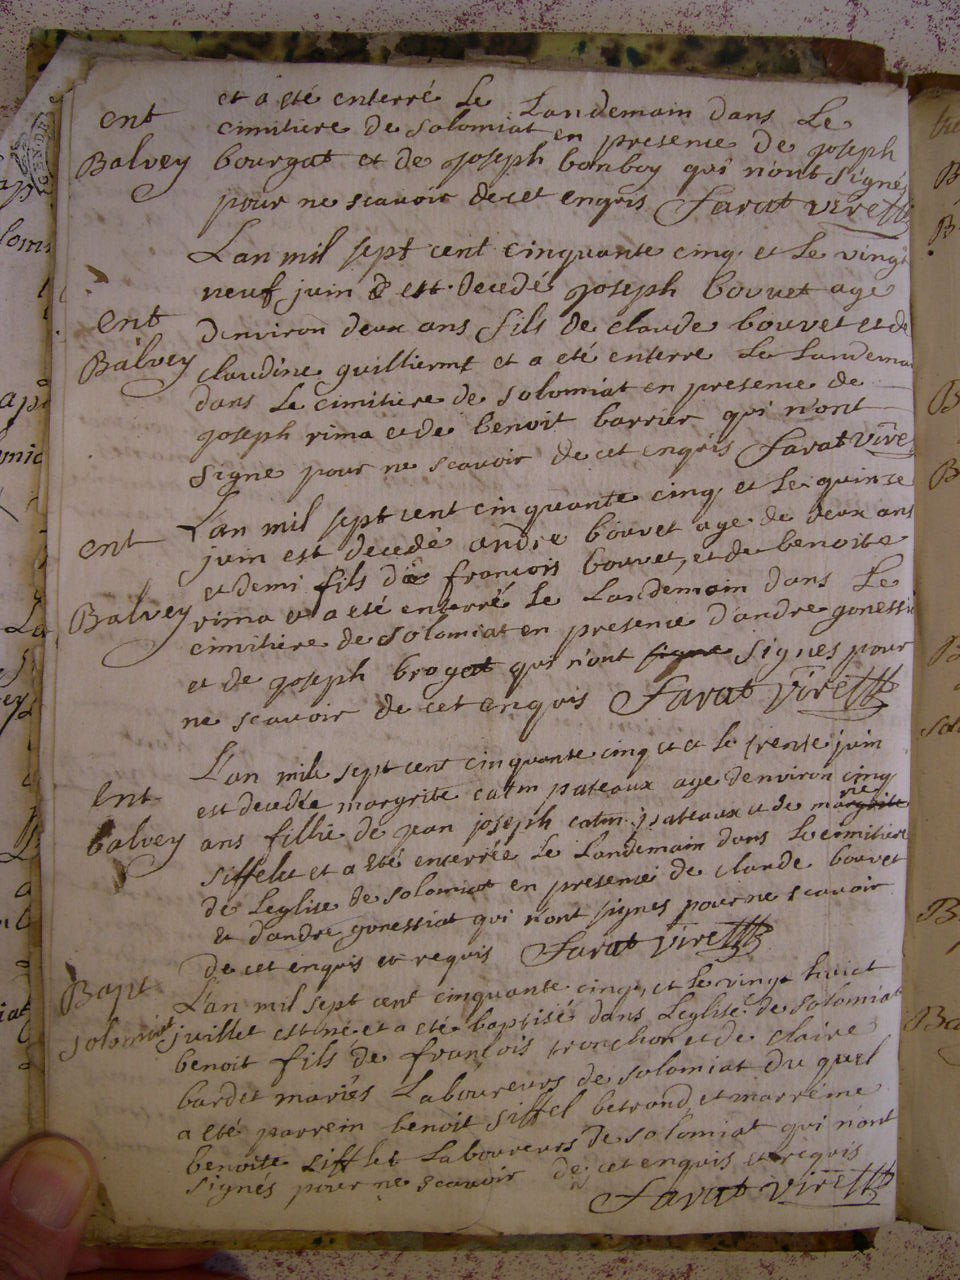 ent
Balvey
et a eté enterré Le Landemain dans Le
cimitiere de solomiat en presence de joseph
bourgat et de joseph bonboy qui n'ont signés
pour ne scavoir de cet enqris Favat vire
ent
Balvey
L'an mil sept cent cinquante cinq et Le vingt
neuf juin est decedé joseph bouvet age
d'environ deux ans fils de claude bouvet et de
claudine guilliermt et a eté enterre Le Landema
dans Le cimitiere de solomiat en presence de
joseph rima et de benoit barrier qui n'ont
signe pour ne scavoir de cet enqris Favat vire
ent
Balvey
L'an mil sept cent cinquante cinq et Le quinze
juin est decedé andre bouvet age de deux ans
et demi fils de francois bouvet, et de benoite
rima et a eté enterré Le Landemain dans Le
cimitiere de solomiat en presence d'andre gonessi
et de joseph brogat qui n'ont signe signes pour
ne scavoir de cet enqvis Favat vire
Ent
balvey
L'an mil sept cent cinquante cinq et et le trente juin
est decedée margrite catin pateaux age denviron cinq
ans fillie de jean joseph catin pateaux et de margrite
siffelet et a eté enterrée Le Landemain dans Le cimitiere
de Leglise de solomiat en presence de claude bouvet
et d'andre gonessiat qui n'ont signes pour ne scavoir
de cet enquis et requis Favat vire
Bapt
solomiat
L'an mil sept cent cinquante cinq, et Le vingt huict
juillet est né et a eté baptisé dans Leglise de solomiat
benoit fils de francois tronchon et de claire
bardet mariés Laboureurs de solomiat du quel
a eté parrein benoit siffel betrand, et marreine
benoite sifflet Laboureurs de solomiat qui n'ont
signés pour ne scavoir de cet enquis et reqvis
Favat vire